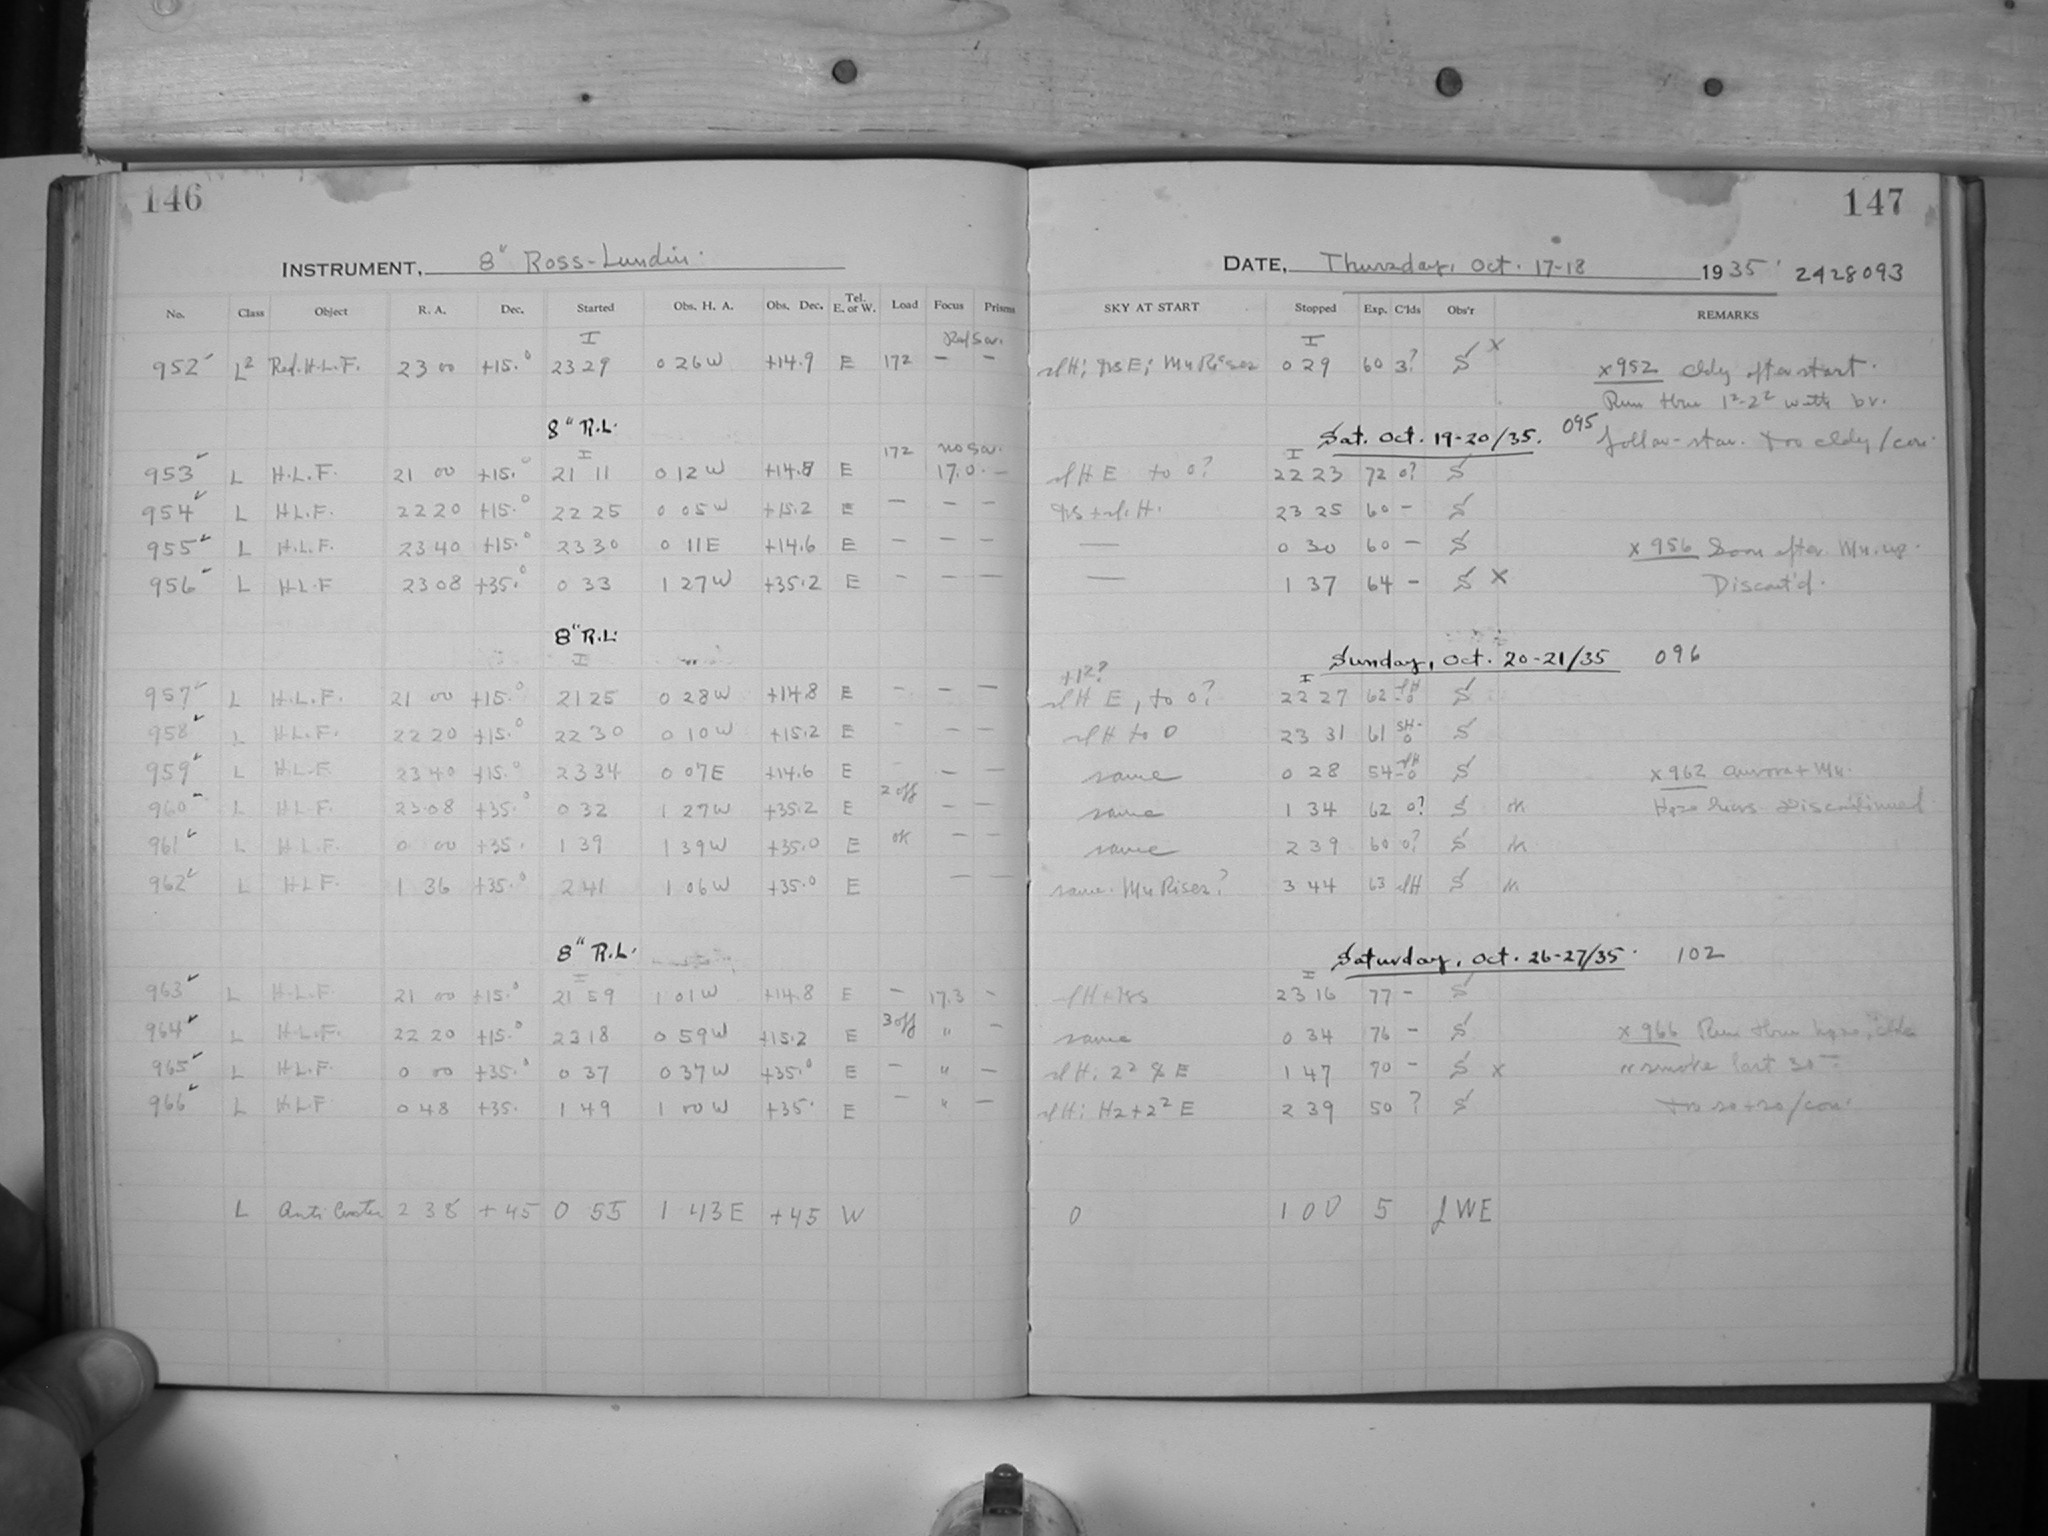 146
INSTRUMENT, 8" Ross-Lundin.
No. Class Object R. A. Dec. Started Obs. H. A. Obs. Dec. Tel. E. or W. Load Focus Prisms
I
952 L2 Red. H.L.F. 23 00 +15.0 23 29 0 26 W +14.9 E 172 - -
8" R.L.
I 172
953 L H.L.F. 21 00 +15.0 21 11 0 12 W +14.8 E 17.0 -
954 L H.L.F. 22 20 +15.0 22 25 0 05 W +15.2 E - - -
955 L H.L.F. 23 40 +15.0 23 30 0 11 E +14.6 E - - -
956 L H.L.F 23 08 +35.0 0 33 1 27 W +35.2 E - - -
8" R.L.
I
957 L H.L.F. 21 00 +15.0 21 25 0 28 W +14.8 E - - -
958 L H.L.F. 22 20 +15.0 22 30 0 10 W +15.2 E - - -
959 L H.L.F. 23 40 +15.0 23 34 0 07 E +14.6 E - -
960 L H.L.F. 23 08 +35.0 0 32 1 27 W +35.2 E 2 off - -
961 L H.L.F. 0 00 +35. 1 39 1 39 W +35.0 E ok - -
962 L H L F. 1 36 +35.0 2 41 1 06 W +35.0 E - -
8" R.L.
I
963 L H.L.F. 21 00 +15.0 21 59 1 01 W +14.8 E - 17.3 -
964 L H.L.F. 22 20 +15.0 23 18 0 59 W +15.2 E 3 off " -
965 L H.L.F. 0 00 +35.0 0 37 0 37 W +35.0 E - " -
966 L H.L.F 0 48 +35. 1 49 1 00 W +35. E - " -
L Anti Center 2 38 +45 0 55 1 43 E +45 W
147
DATE, Thursday, Oct. 17-18 1935. 2428093
SKY AT START Stopped Exp. C'lds Obs'r REMARKS
I
0 29 60 3? S x
x 952 cldy after start.
Run thru 1²-2² with br.
follow-star. Too cldy/con.
Sat. Oct. 19-20/35. 095
I
sl H E to 0? 22 23 72 0? S
23 25 60 - S
— 0 30 60 - S x 956 Soon after Mn. up.
— 1 37 64 - S x Discont'd.
Sunday, Oct. 20-21/35 096
+12? I
sl H E, to 0? 22 27 62 sl H -0 S
sl H to 0 23 31 61 SH- 0 S
same 0 28 54 sl H -0 S x 962 aurora + Mn.
same 1 34 62 0? S
same 2 39 60 0? S
same. Mn Rises? 3 44 63 sl H S
Saturday, Oct. 26-27/35. 102
I
23 16 77 - S
same 0 34 76 - S x 966 Run thru
sl H; 2² & E 1 47 70 - S x smoke last 30
sl H; H2+2² E 2 39 50 ? S
0 1 00 5 JWE